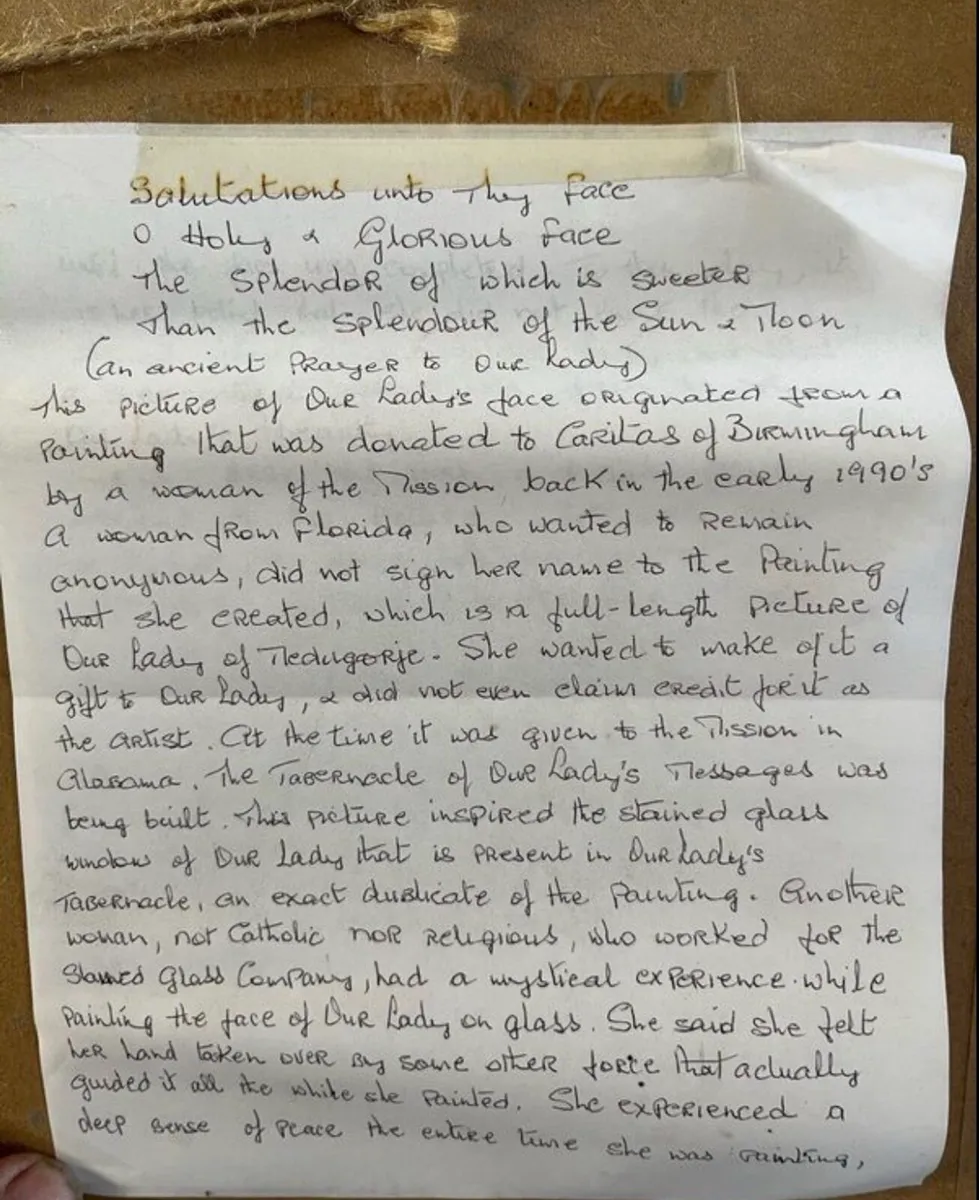 Salutations unto Thy face
O Holy & Glorious face
The Splendor of which is sweeter
Than the Splendour of the Sun & Moon
(an ancient Prayer to Our Lady)
This picture of Our Lady's face originated from a
Painting that was donated to Caritas of Birmingham
by a woman of the Mission back in the early 1990's
A woman from Florida, who wanted to Remain
anonymous, did not sign her name to the Painting
that she created, which is a full-length Picture of
Our Lady of Medugorje. She wanted to make of it a
gift to Our Lady, & did not even claim credit for it as
the artist. At the time it was given to the Mission in
Alabama. The Tabernacle of Our Lady's Messages was
being built. This picture inspired the stained glass
window of Our Lady that is present in Our Lady's
Tabernacle, an exact duplicate of the painting. Another
woman, not Catholic nor Religious, who worked for the
Stained Glass Company, had a mystical experience while
Painting the face of Our Lady on glass. She said she felt
her hand taken over by some other force that actually
guided it all the while she painted. She experienced a
deep sense of peace the entire time she was painting,